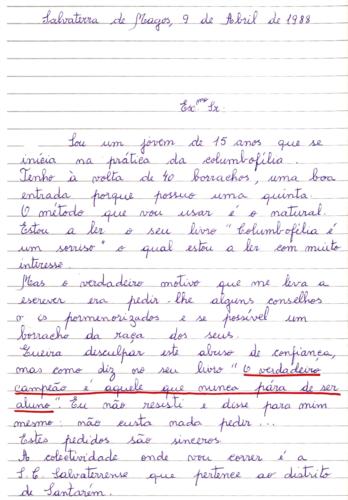 Salvaterra de Magos, 9 de Abril de 1988
Exmo Sr:
Sou um jovem de 15 anos que se
inicia na prática da columbofilia.
Tenho à volta de 40 borrachos, uma boa
entrada porque possuo uma quinta.
O método que vou usar é o natural.
Estou a ler o seu livro "Columbofilia é
um sorriso" o qual estou a ler com muito
interesse.
Mas o verdadeiro motivo que me leva a
escrever era pedir-lhe alguns conselhos
o is pormenorizados e se possível um
borracho da raça dos seus.
Queira desculpar este abuso de confiança,
mas como diz no seu livro "O verdadeiro
campeão é aquele que nunca pára de ser
aluno". Eu não resisti e disse para mim
mesmo: não custa nada pedir...
Estes pedidos são sinceros.
A colectividade onde vou correr é a
S.C. Salvaterrense que pertence ao distrito
de Santarém.